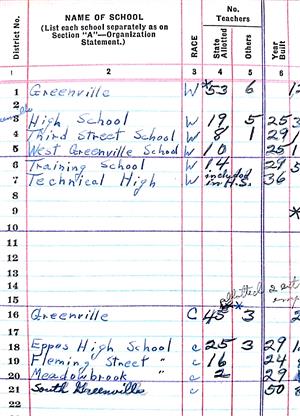 District No.
NAME OF SCHOOL
(List each school separately as on
Section "A"—Organization
Statement.)
RACE
No.
Teachers
State
Allotted
Others
Year
Built
1 2 3 4 5 6
1 Greenville W *53 6
2
3 High School W 19 5 25
4 Third Street School W 8 1 29
5 West Greenville School W 10 25
6 Training School W 14 29
7 Technical High W included in H.S. 36
8
9
10
11
12
13
14
15 allotted 2
16 Greenville C 45 3
17
18 Eppes High School C 25 3 29
19 Fleming Street " C 16 24
20 Meadowbrook " C 2 29
21 South Greenville 50
22